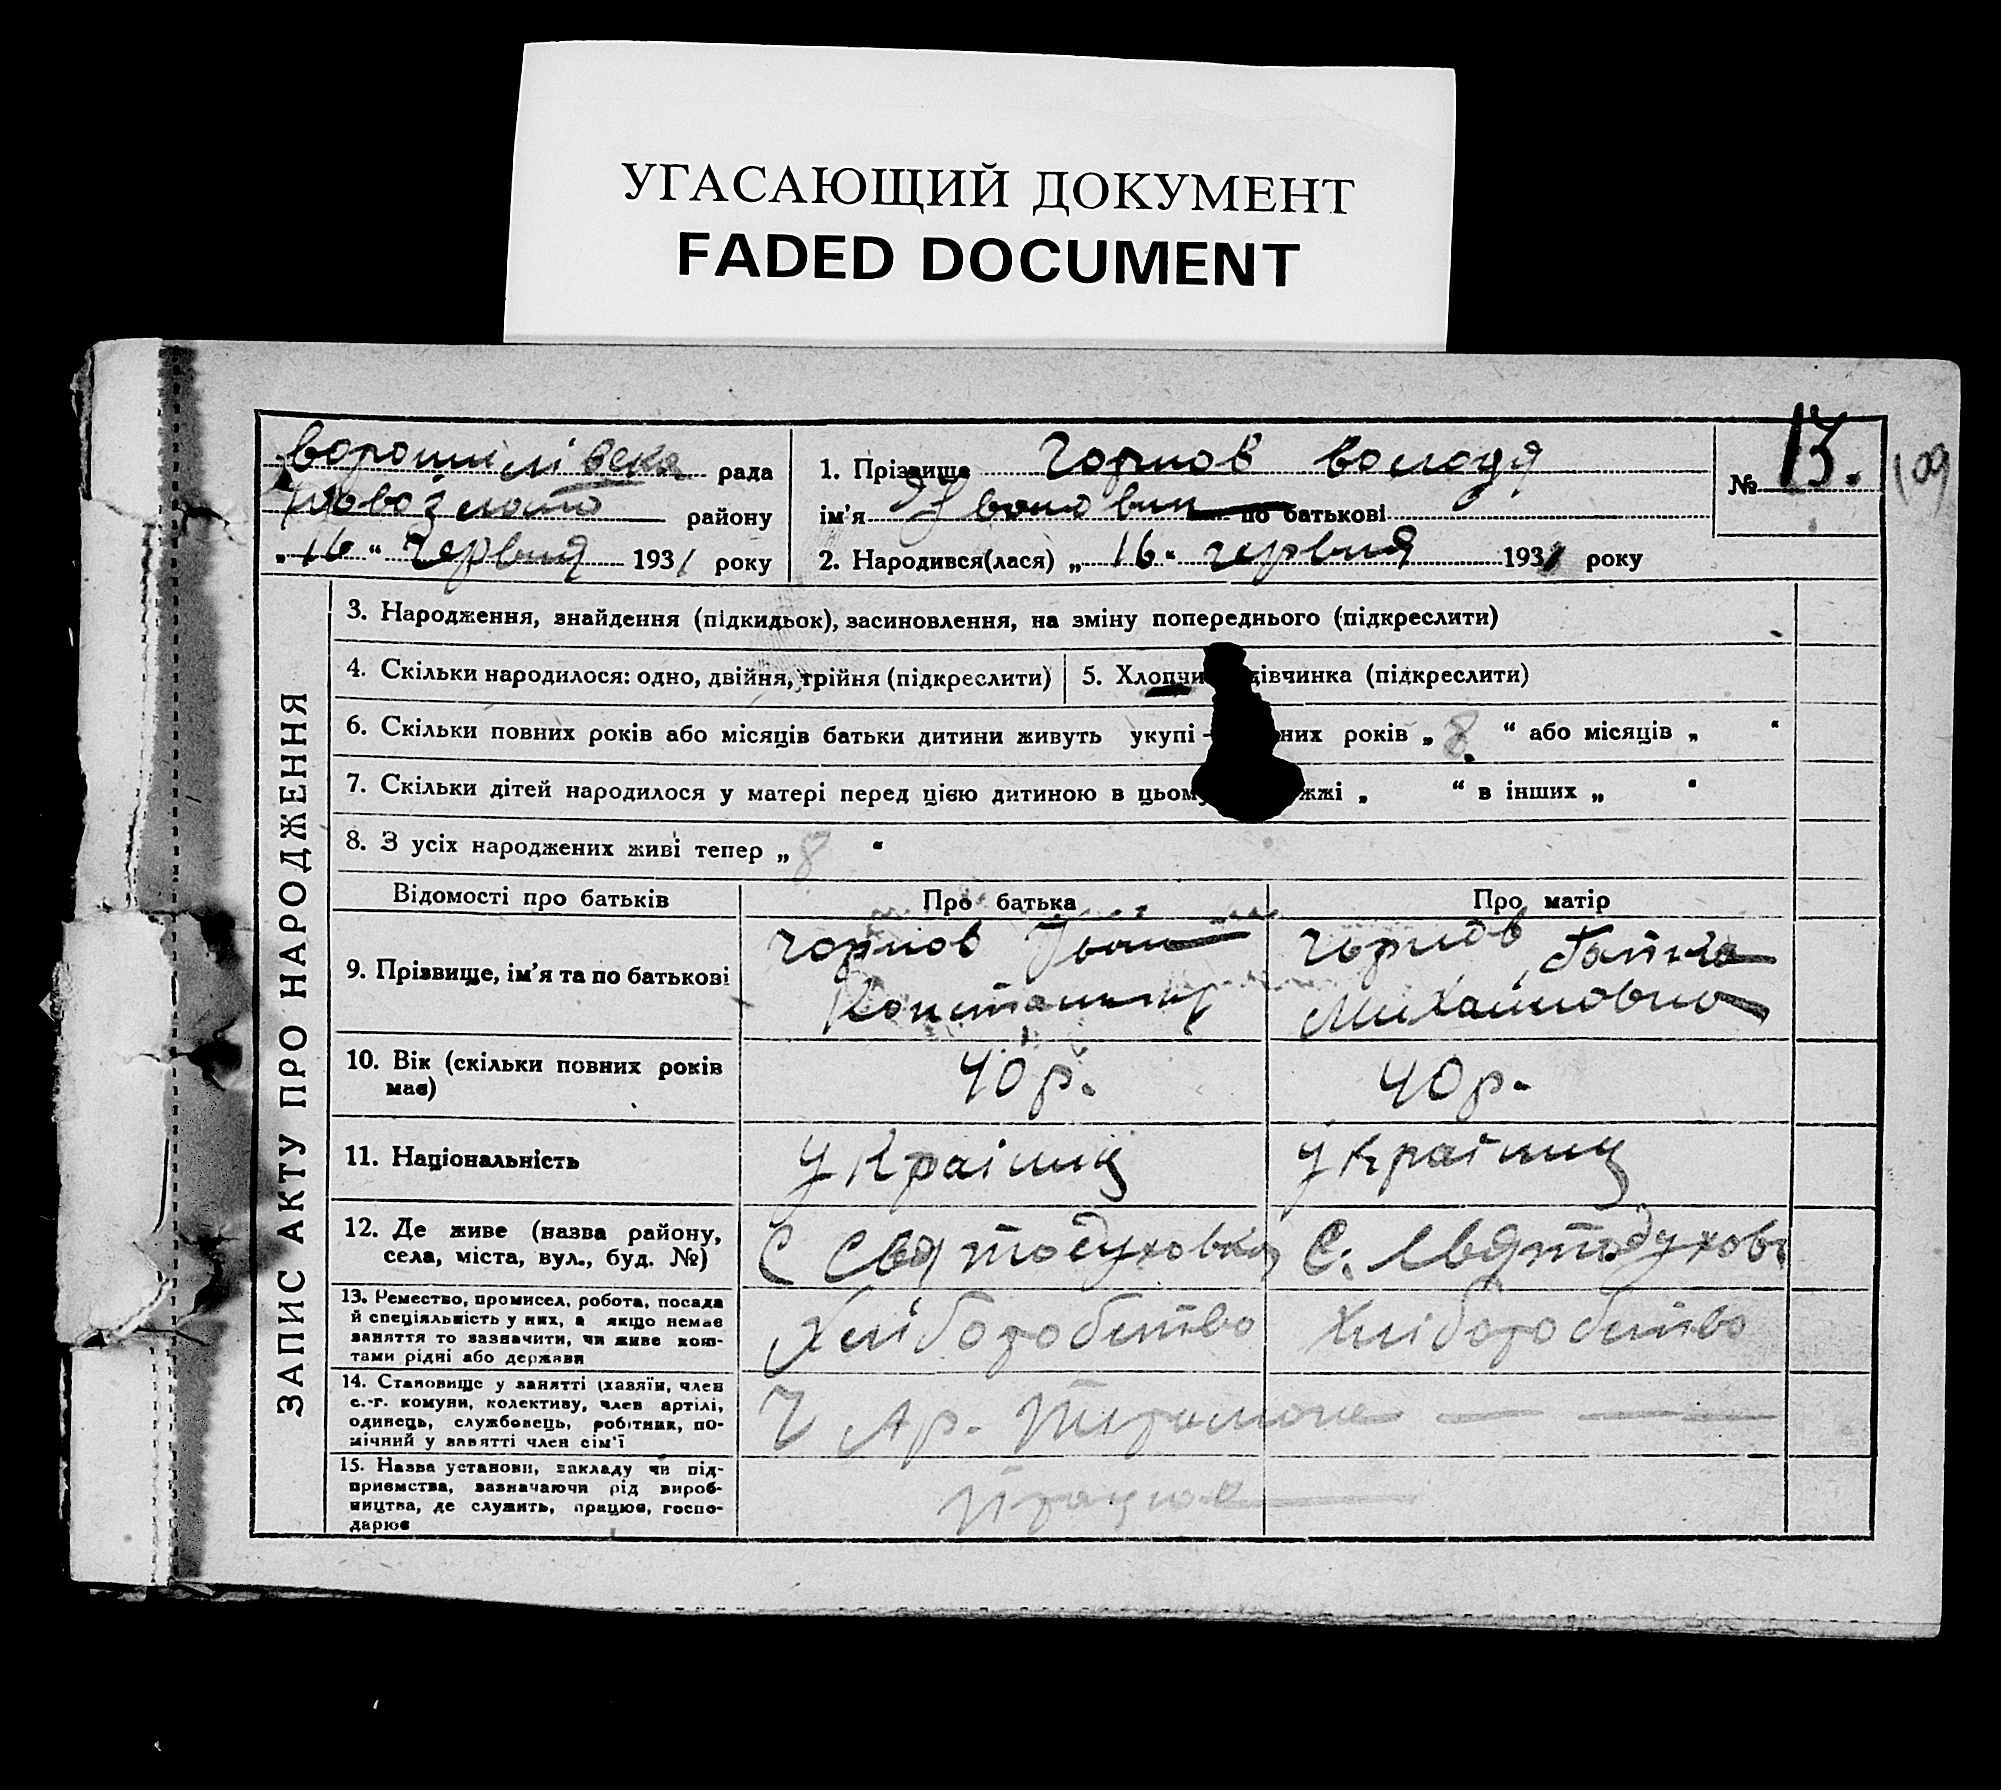 УГАСАЮЩИЙ ДОКУМЕНТ
FADED DOCUMENT
рада
району
„16“ червня 1931 року
1. Прізвище Чорнов Володя
ім'я Івонович по батькові
2. Народився(лася) „16“ червня 1931 року
№ 13.
109
ЗАПИС АКТУ ПРО НАРОДЖЕННЯ
3. Народження, знайдення (підкидьок), засиновлення, на зміну попереднього (підкреслити)
4. Скільки народилося: одно, двійня, трійня (підкреслити)
5. Хлопчи дівчинка (підкреслити)
6. Скільки повних років або місяців батьки дитини живуть укупі - них років „8“ або місяців „ “
7. Скільки дітей народилося у матері перед цією дитиною в цьому жжі „ “ в інших „ “
8. З усіх народжених живі тепер „8“
Відомості про батьків
Про батька
Про матір
9. Прізвище, ім'я та по батькові
Чорнов Іван
Чорнов Ганна
Михайловна
10. Вік (скільки повних років
має)
40 р.
40 р.
11. Національність
Українц
Українц
12. Де живе (назва району,
села, міста, вул., буд. №)
С Святодуховка
С. Святодухов
13. Ремество, промисел, робота, посада
й спеціяльність у них, а якщо немає
заняття то зазначити, чи живе кош-
тами рідні або держави
Хліборобство
Хліборобство
14. Становище у занятті (хазяїн, член
с.-г. комуни, колективу, член артілі,
одинець, службовець, робітник, по-
мічний у занятті член сім'ї
Ч Ар.
15. Назва установи, закладу чи під-
приємства, зазначаючи рід вироб-
ництва, де служить, працює, госпо-
дарює
працює